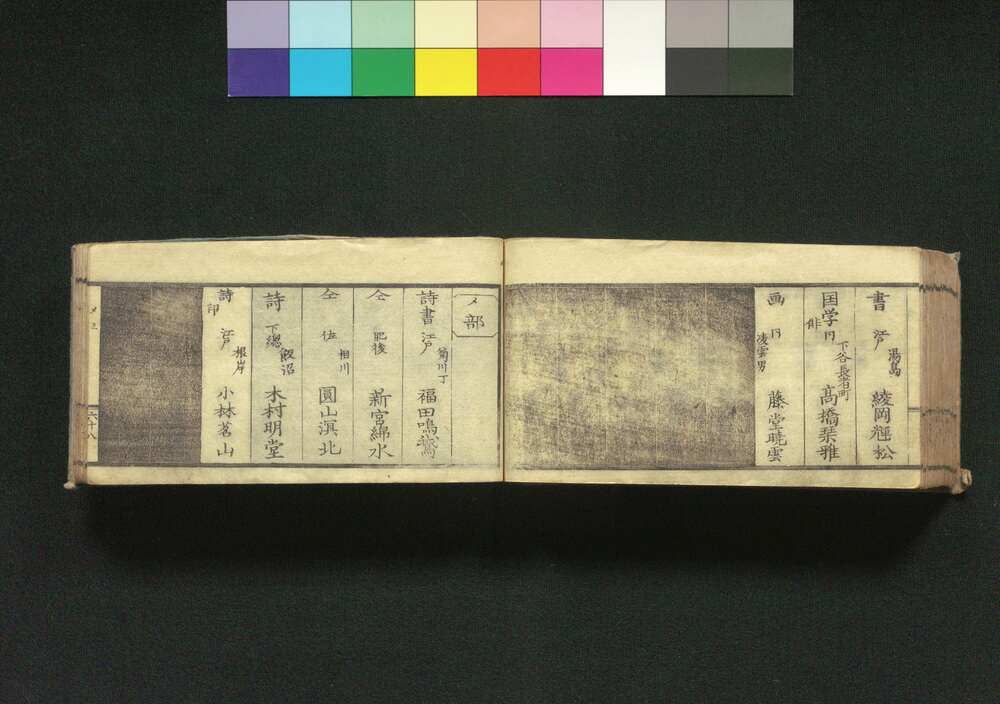 書 江戸 湯島 綾岡輝松
国学 俳 円 下谷長者町 高橋栞雅
画 円 凌雲男 藤堂暁雲
メ部
詩書 江戸 菊川丁 福田鳴鵞
仝 肥後 新宮綿水
仝 佐 相川 圓山溟北
詩 下總 飯沼 木村明堂
詩 印 江戸 根岸 小林茗山
六十八